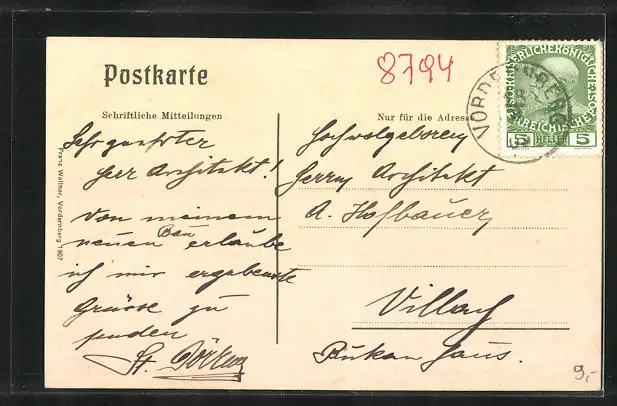 Postkarte
8794
Schriftliche Mitteilungen
Nur für die Adresse
VORDERNBERG
KAISERLICHEKÖNIGLICHE
ÖSTERREICHISCHE
5 HELLER 5
Sehr geehrter
Herr Architekt!
Von meinem
neuen Bau erlaube
ich mir ergebenste
Grüsse zu
senden
St.
Hochwolgeboren
Herrn Architekt
A. Hofbauer
Villach
haus.
Franz Wallner, Vordernberg 1907
9,-